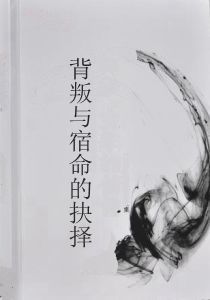 背叛与宿命的抉择